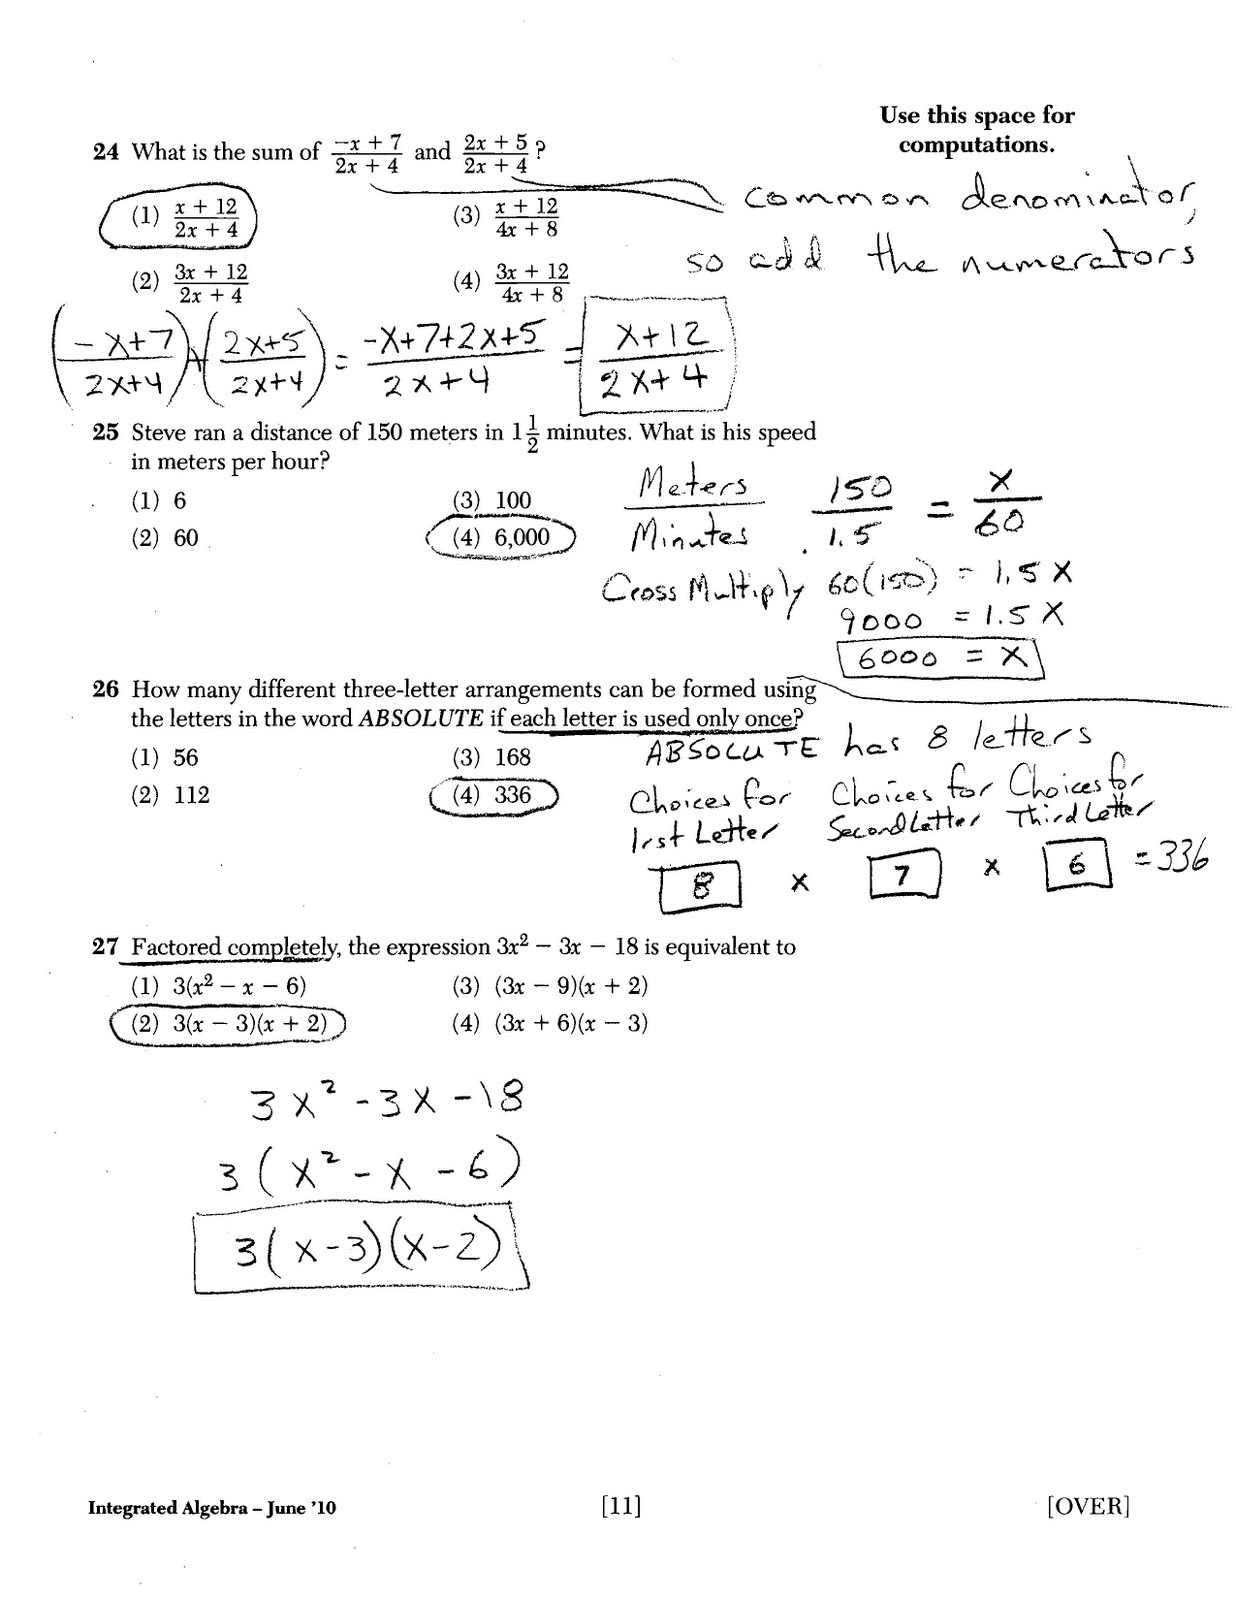 Use this space for
computations.
24 What is the sum of (-x + 7)/(2x + 4) and (2x + 5)/(2x + 4) ?
(1) (x + 12)/(2x + 4) (3) (x + 12)/(4x + 8)
(2) (3x + 12)/(2x + 4) (4) (3x + 12)/(4x + 8)
common denominator,
so add the numerators
((-x+7)/(2x+4)) + ((2x+5)/(2x+4)) = (-x+7+2x+5)/(2x+4) = (x+12)/(2x+4)
25 Steve ran a distance of 150 meters in 1 1/2 minutes. What is his speed
in meters per hour?
(1) 6 (3) 100
(2) 60 (4) 6,000
Meters/Minutes 150/1.5 = x/60
Cross Multiply 60(150) = 1.5x
9000 = 1.5x
6000 = x
26 How many different three-letter arrangements can be formed using
the letters in the word ABSOLUTE if each letter is used only once?
(1) 56 (3) 168
(2) 112 (4) 336
ABSOLUTE has 8 letters
Choices for Choices for Choices for
1rst Letter Second Letter Third Letter
8 x 7 x 6 = 336
27 Factored completely, the expression 3x² − 3x − 18 is equivalent to
(1) 3(x² − x − 6) (3) (3x − 9)(x + 2)
(2) 3(x − 3)(x + 2) (4) (3x + 6)(x − 3)
3x² - 3x - 18
3(x² - x - 6)
3(x-3)(x-2)
Integrated Algebra – June ’10 [11] [OVER]